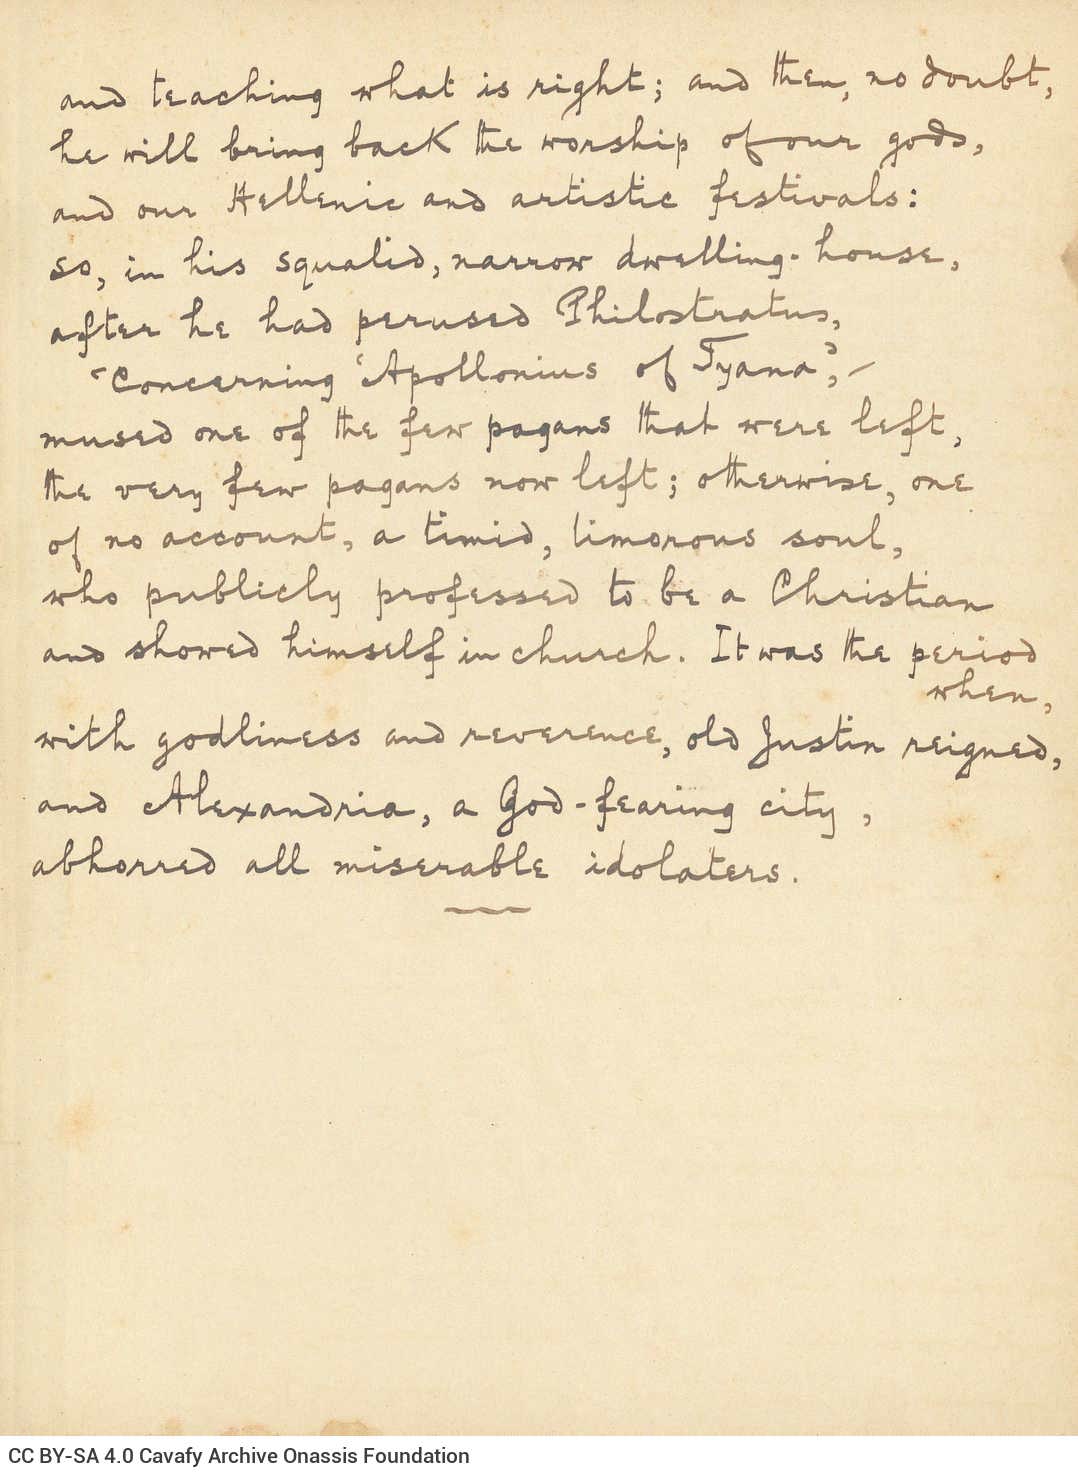 and teaching what is right; and then, no doubt,
he will bring back the worship of our gods,
and our Hellenic and artistic festivals:
so, in his squalid, narrow dwelling-house,
after he had perused Philostratus,
"Concerning 'Apollonius of Tyana', —
mused one of the few pagans that were left,
the very few pagans now left; otherwise, one
of no account, a timid, timorous soul,
who publicly professed to be a Christian
and showed himself in church. It was the period
when,
with godliness and reverence, old Justin reigned,
and Alexandria, a God-fearing city,
abhorred all miserable idolaters.
CC BY-SA 4.0 Cavafy Archive Onassis Foundation